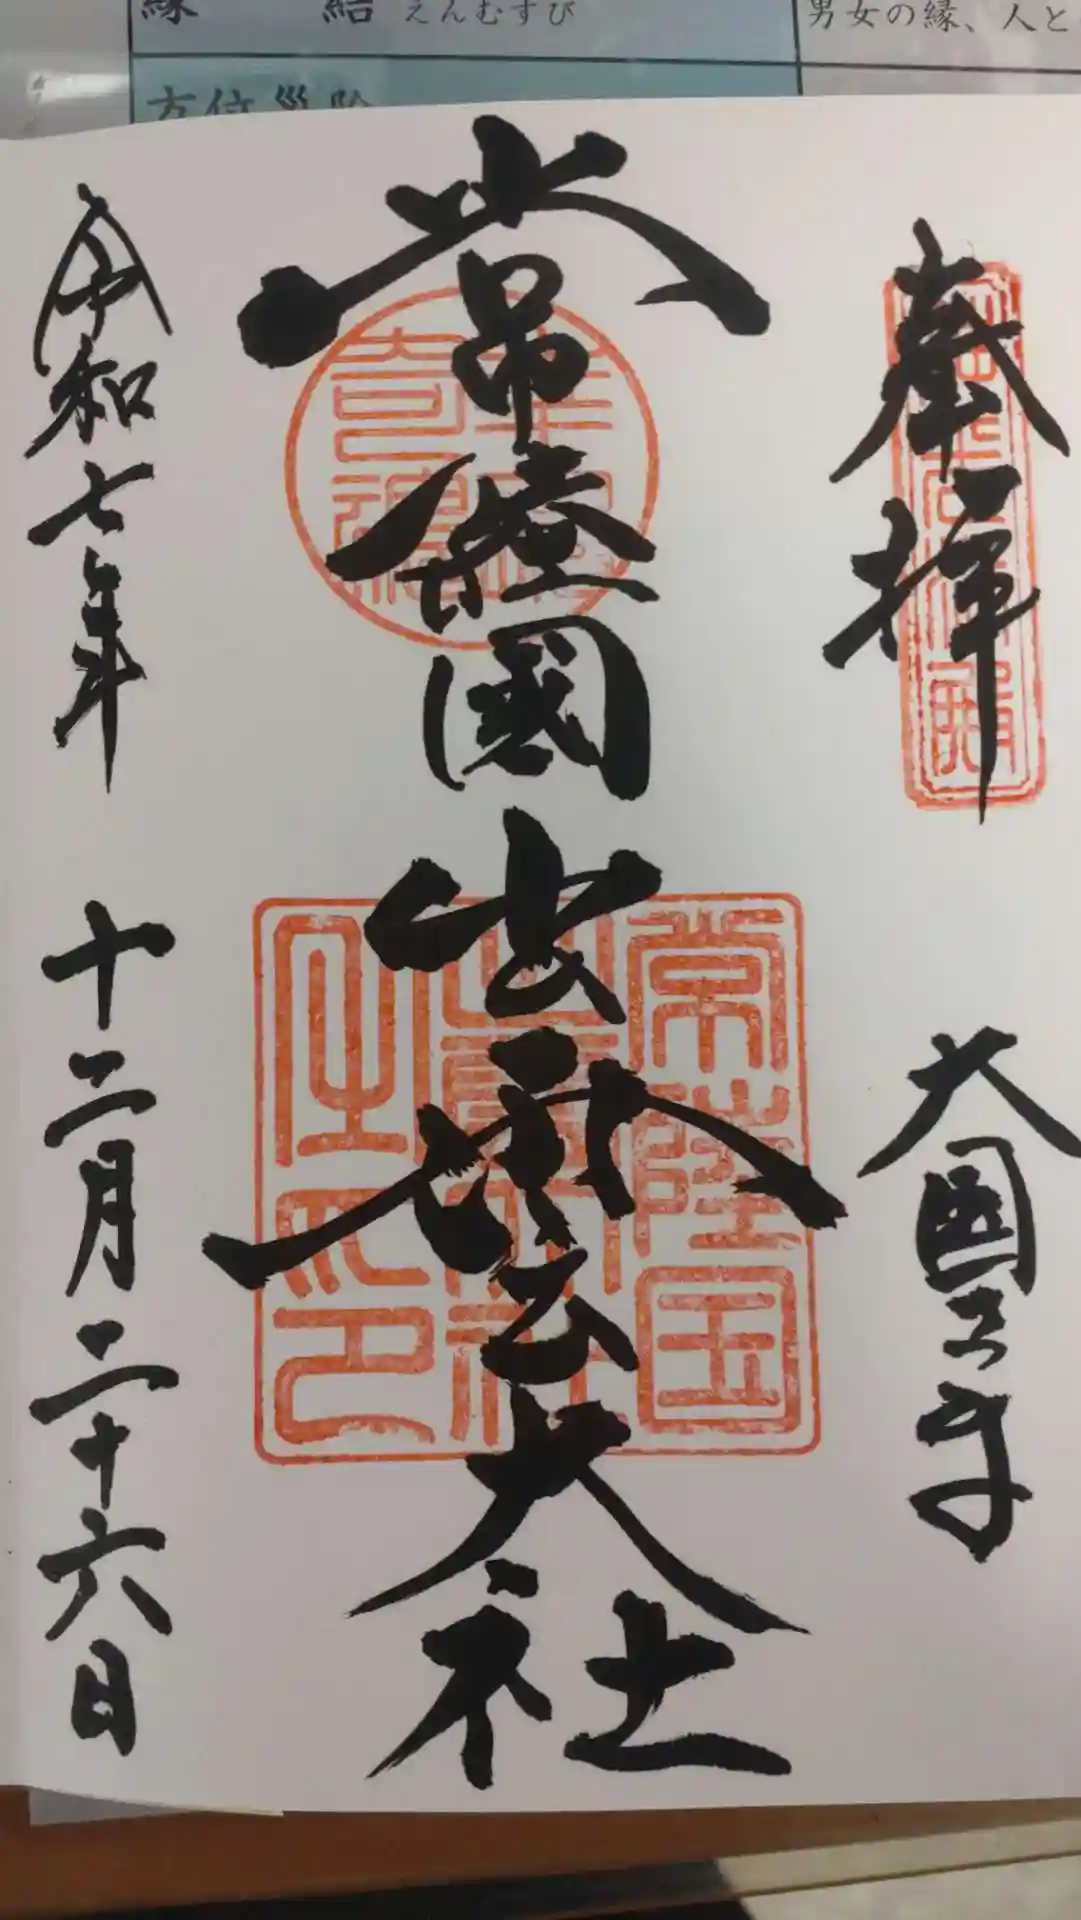 縁結 えんむすび
男女の縁、人と
方位災除
奉拝
大國主命
常陸國出雲大社
令和七年十二月二十六日
幸魂
奇魂
常陸国
出雲大社
之印